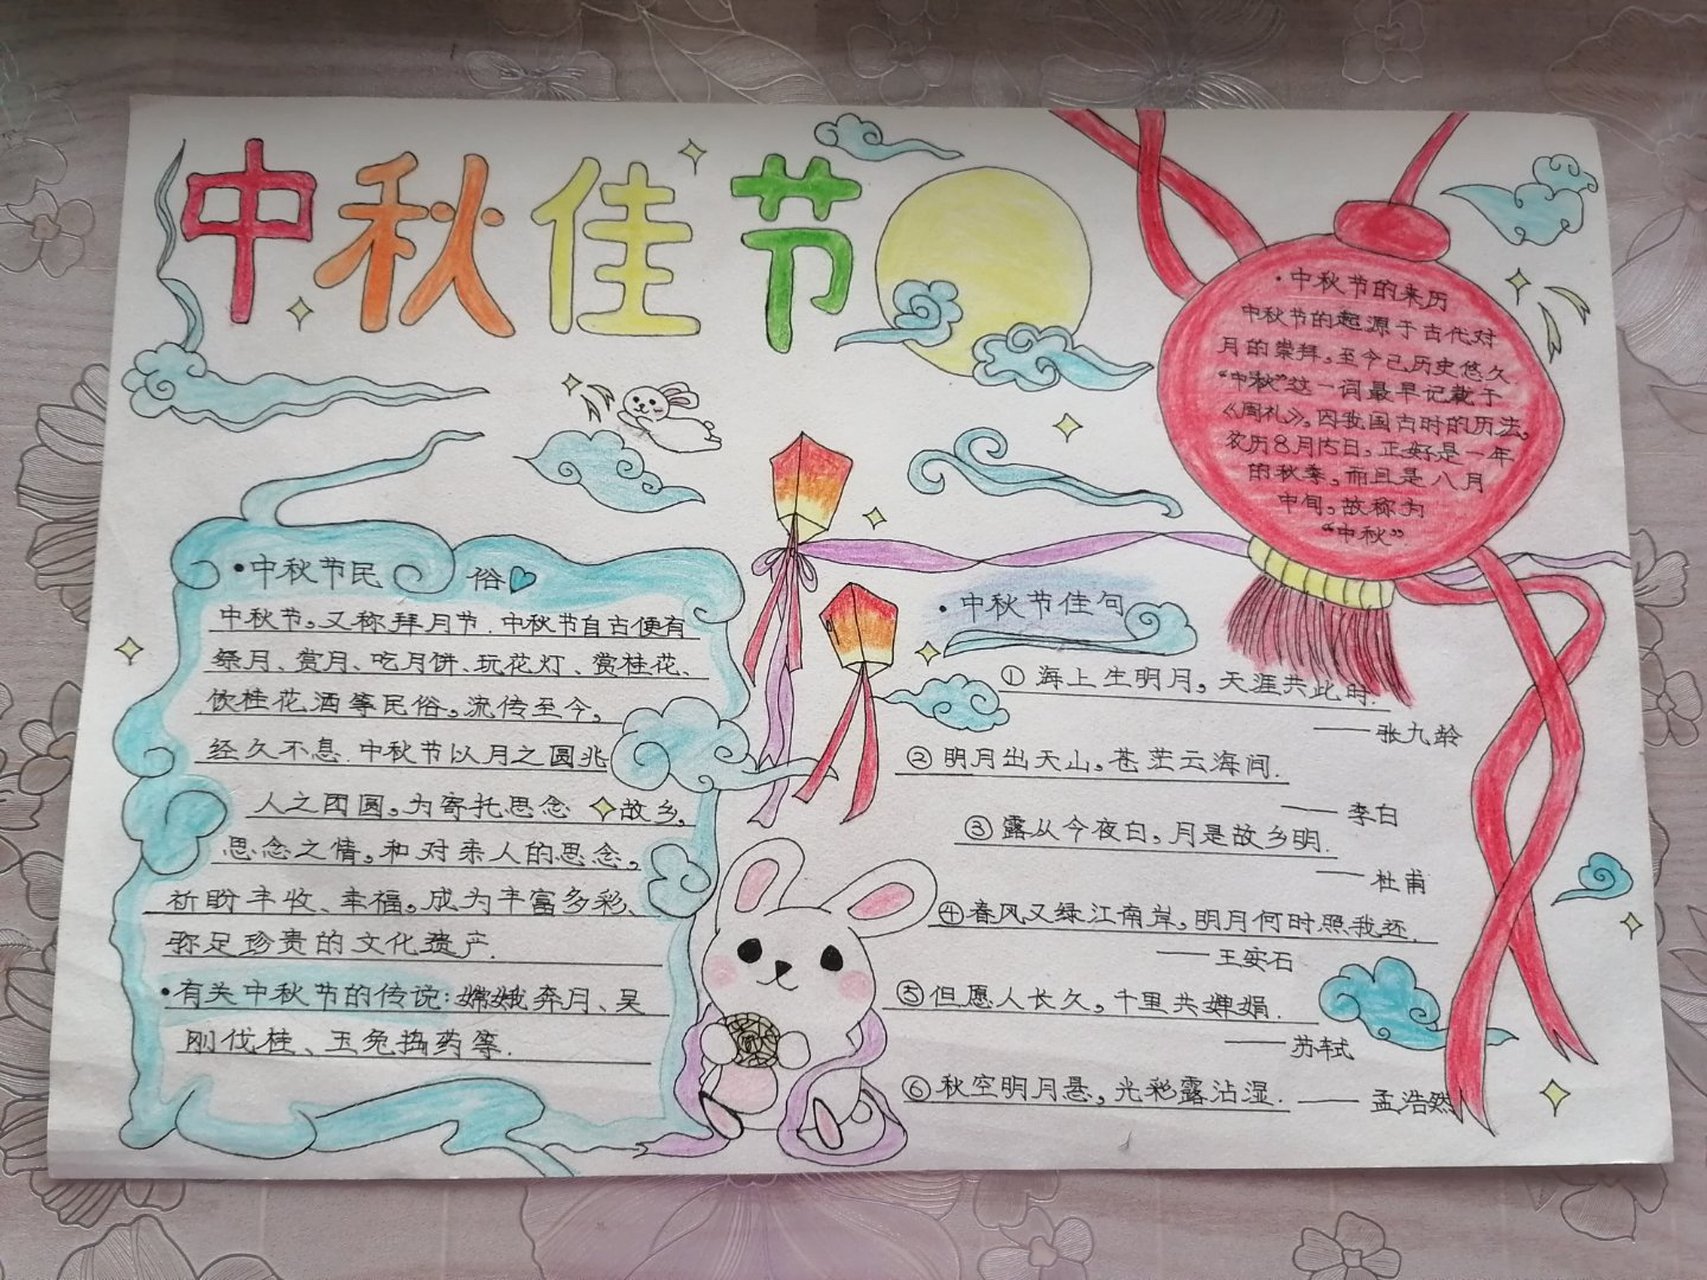 中秋佳节
·中秋节的来历
中秋节的起源于古代对
月的崇拜,至今已历史悠久.
“中秋”这一词最早记载于
《周礼》,因我国古时的历法,
农历8月15日,正好是一年
的秋季,而且是八月
中旬,故称为
“中秋”.
·中秋节民俗
中秋节,又称拜月节.中秋节自古便有
祭月、赏月、吃月饼、玩花灯、赏桂花、
饮桂花酒等民俗,流传至今,
经久不息.中秋节以月之圆兆
人之团圆,为寄托思念故乡,
思念之情,和对亲人的思念,
祈盼丰收、幸福,成为丰富多彩、
弥足珍贵的文化遗产.
·有关中秋节的传说:嫦娥奔月、吴
刚伐桂、玉兔捣药等.
·中秋节佳句
①海上生明月,天涯共此时.
——张九龄
②明月出天山,苍茫云海间.
——李白
③露从今夜白,月是故乡明.
——杜甫
④春风又绿江南岸,明月何时照我还.
——王安石
⑤但愿人长久,千里共婵娟.
——苏轼
⑥秋空明月悬,光彩露沾湿.——孟浩然